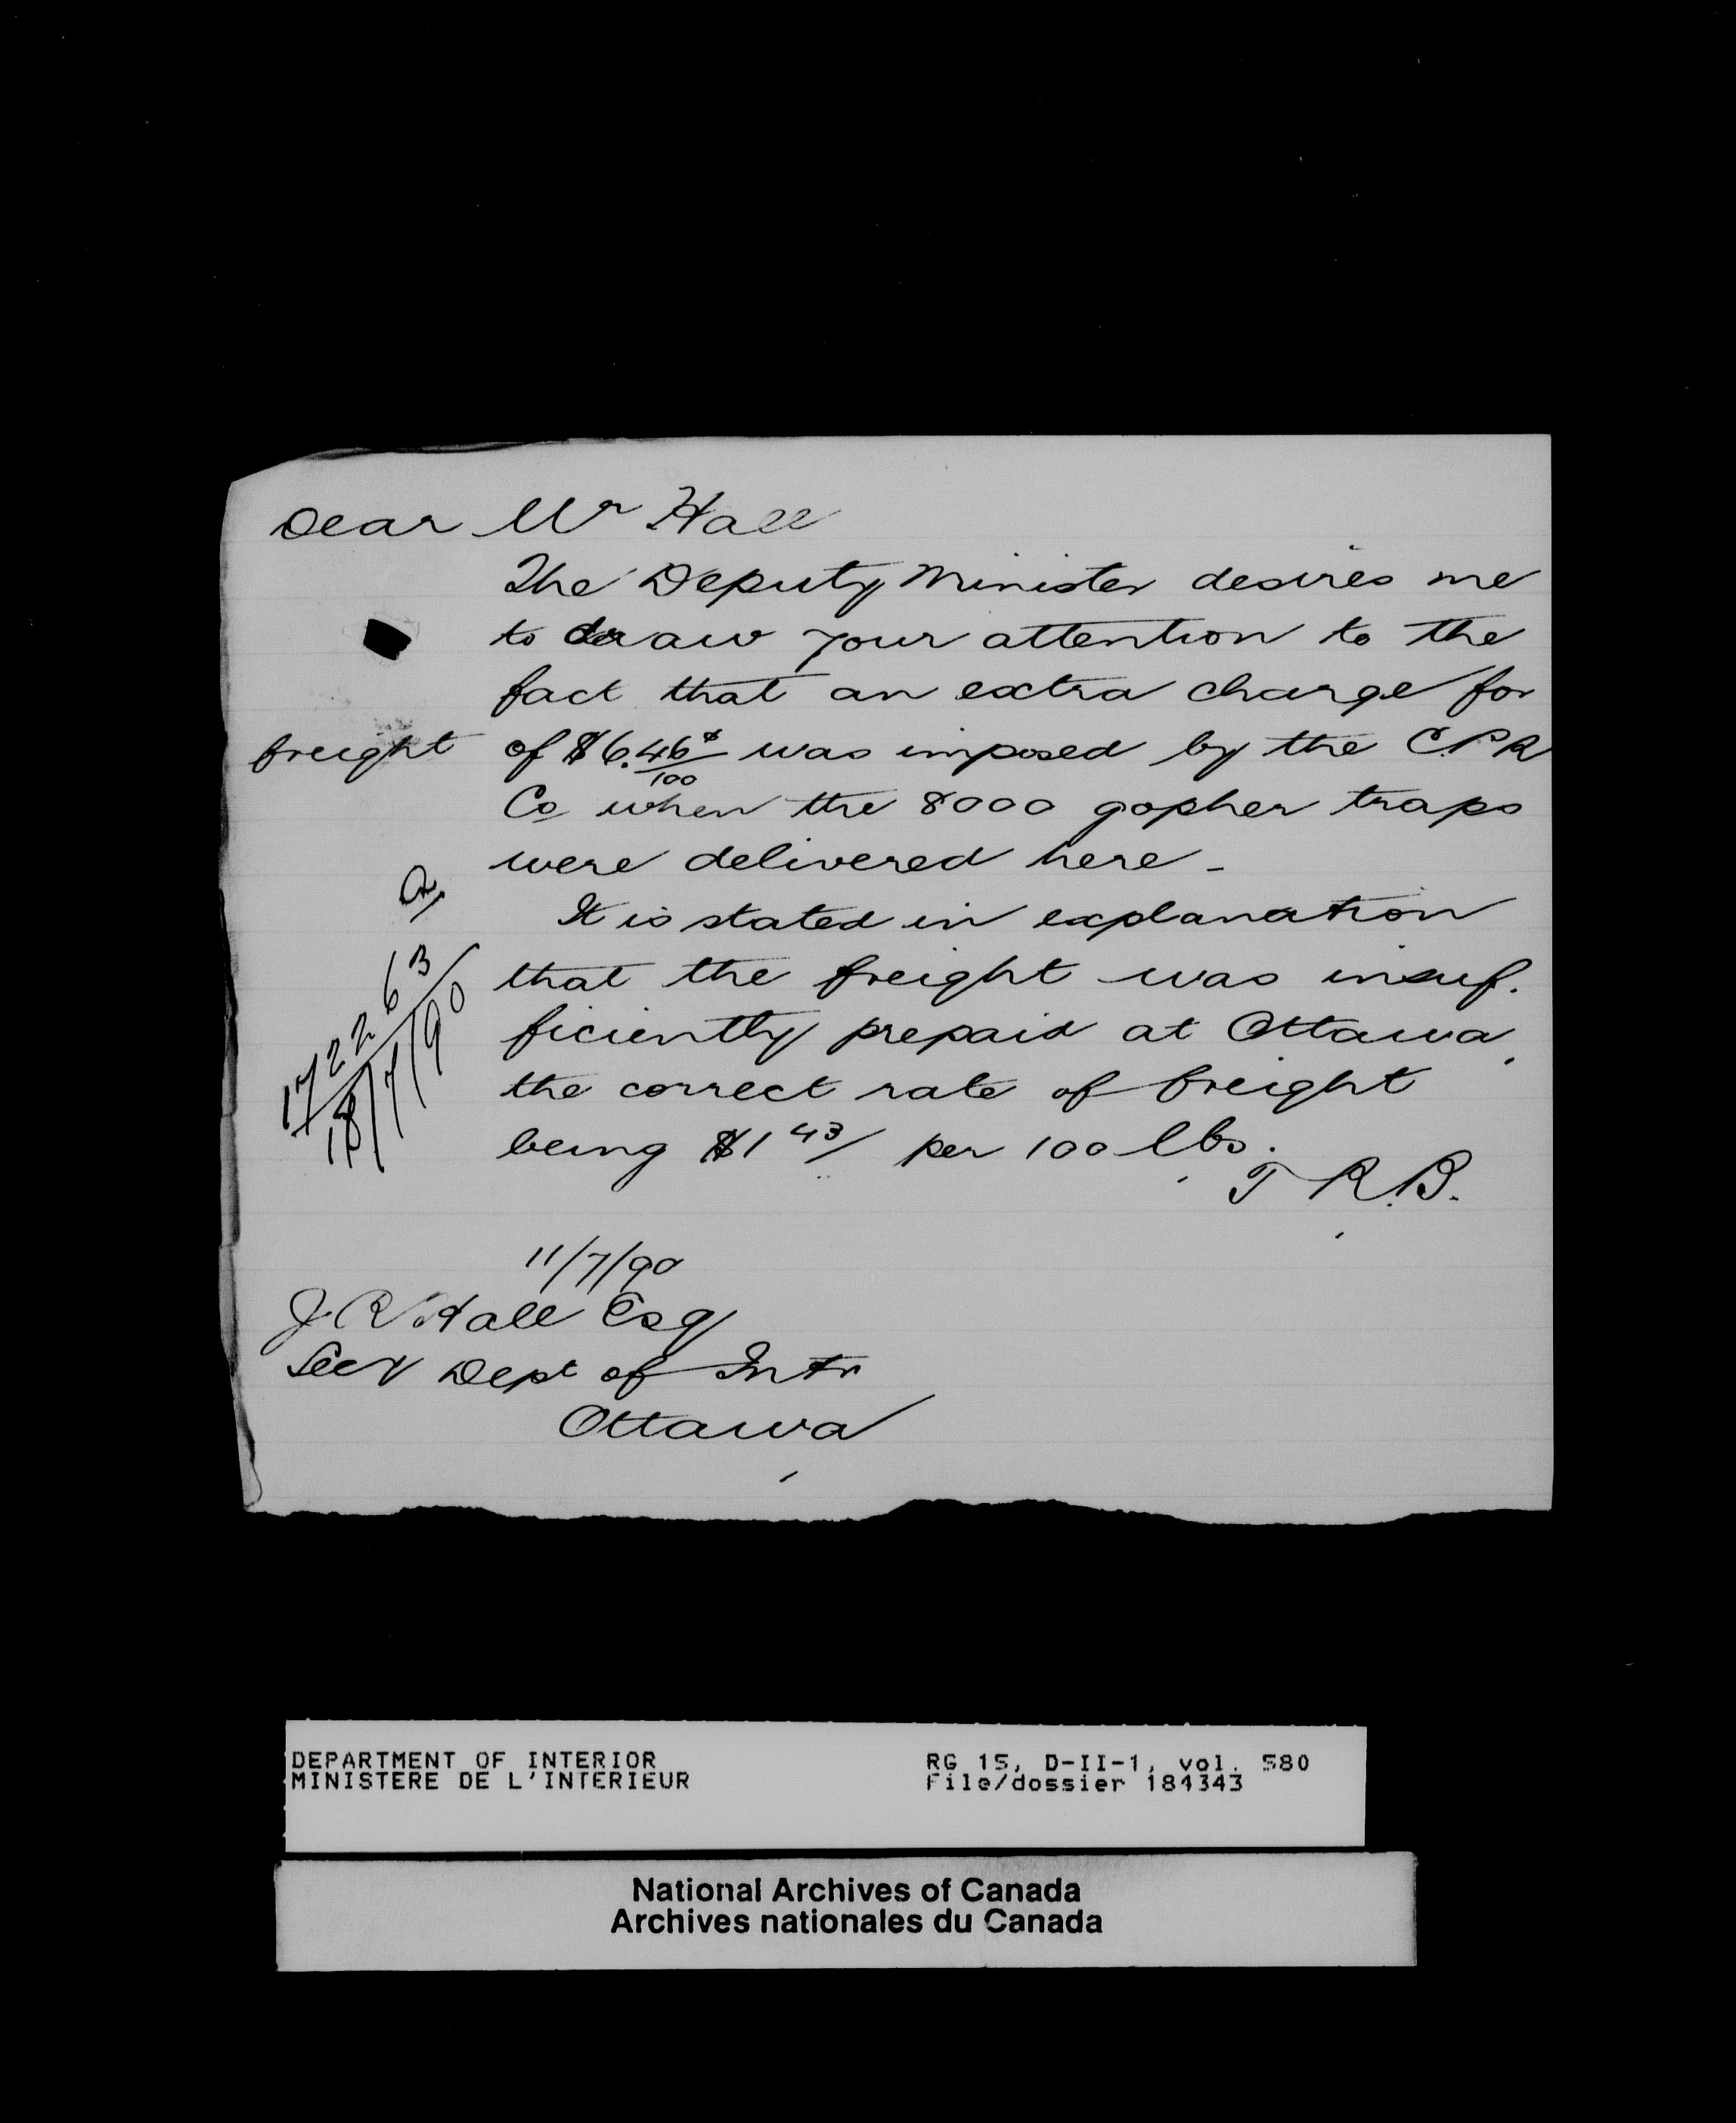 Dear Mr Hall
The Deputy Minister desires me
to draw your attention to the
fact that an extra charge for
freight of $6.46/100 was imposed by the C.P.R
Co when the 8000 gopher traps
were delivered here -
It is stated in explanation
that the freight was insuf.
ficiently prepaid at Ottawa,
the correct rate of freight
being $1 43/ per 100 lbs.
T R.B.
172263
18/7/90
11/7/90
J. R Hall Esq
Secy Dept of Intr
Ottawa
DEPARTMENT OF INTERIOR
MINISTERE DE L'INTERIEUR
RG 15, D-II-1, vol. 580
File/dossier 184343
National Archives of Canada
Archives nationales du Canada